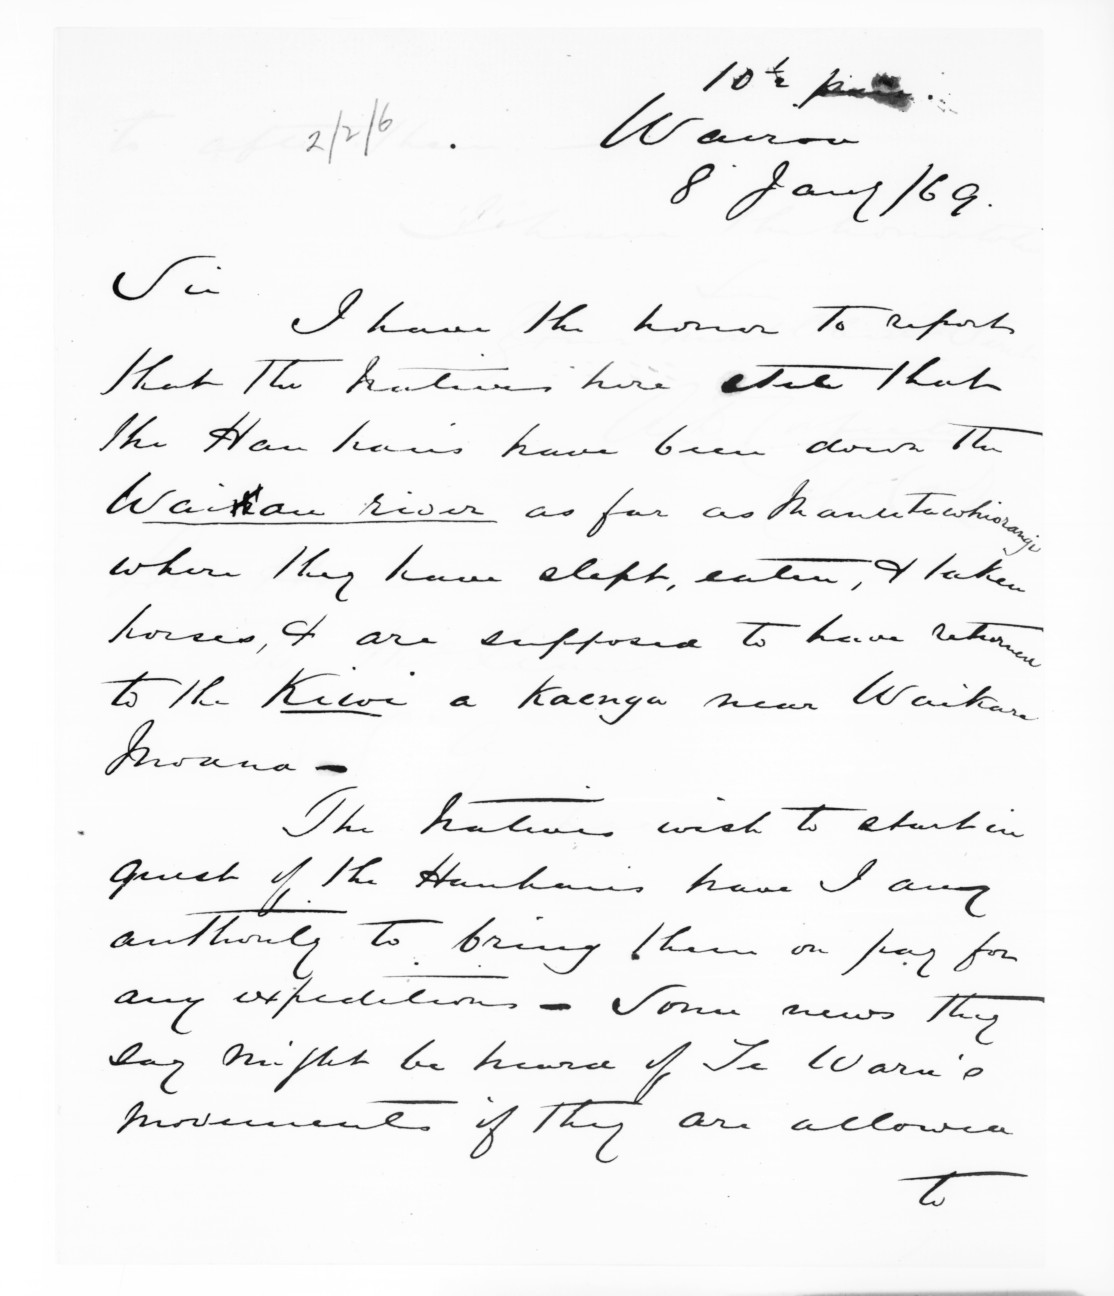 10½ pm.
2/2/6
Wairoa
8 Jany /69.
Sir
I have the honor to report
that the Natives here state that
the Hau haus have been down the
Waiau river as far as Manutawhiorangi
where they have slept, eaten, & taken
horses, & are supposed to have returned
to the Kiwi a Kaenga near Waikare
Moana -
The Natives wish to start in
quest of the Hauhaus have I any
authority to bring them on pay for
any expeditions - Some news they
say might be heard of Te Waru's
movements if they are allowed
to